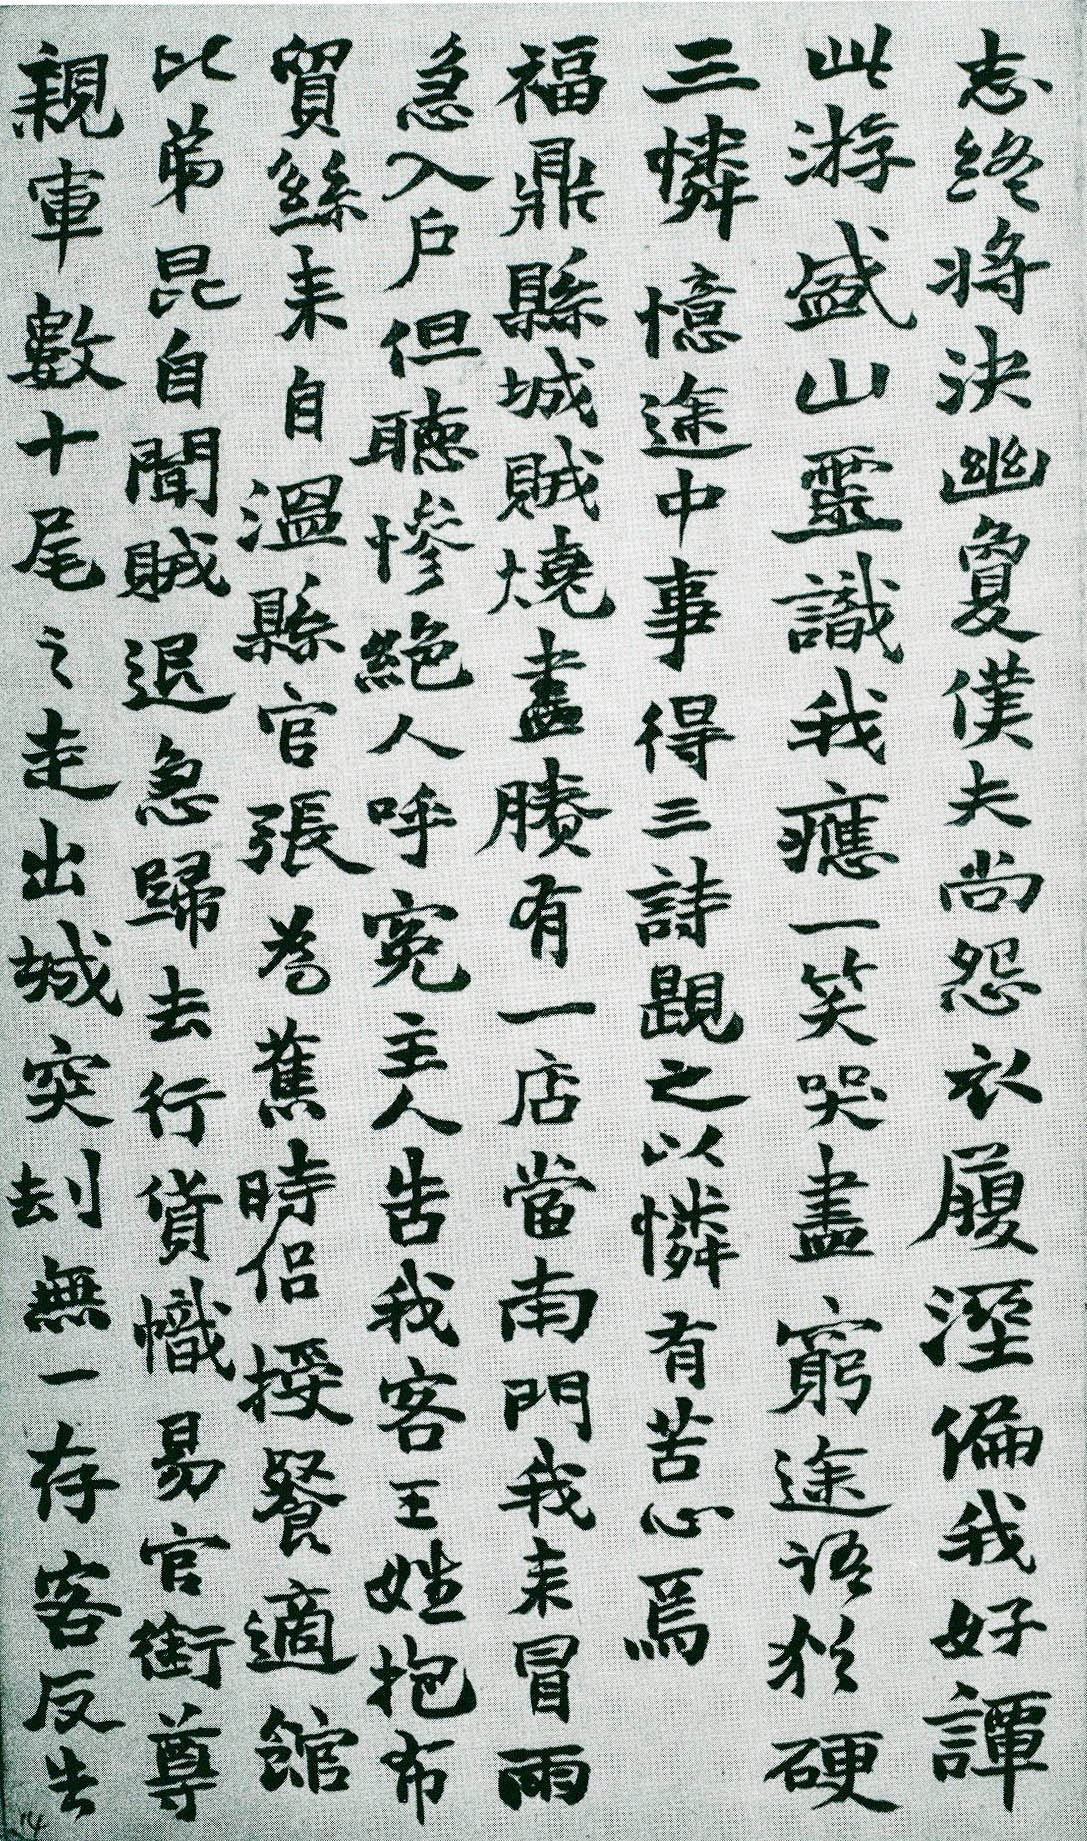 志終將決幽夐僕夫尚怨衣履溼偏我好譚
此游盛山靈識我應一笑哭盡窮途語猶硬
三憐 憶途中事得三詩題之以憐有苦心焉
福鼎縣城賊燒盡賸有一店當南門我來冒雨
急入戶但聽慘絕人呼冤主人告我客王姓抱布
貿絲來自溫縣官張為舊時侶授餐適館
比弟昆自聞賊退急歸去行貨幟易官銜尊
親軍數十尾之走出城突刦無一存客反告
14